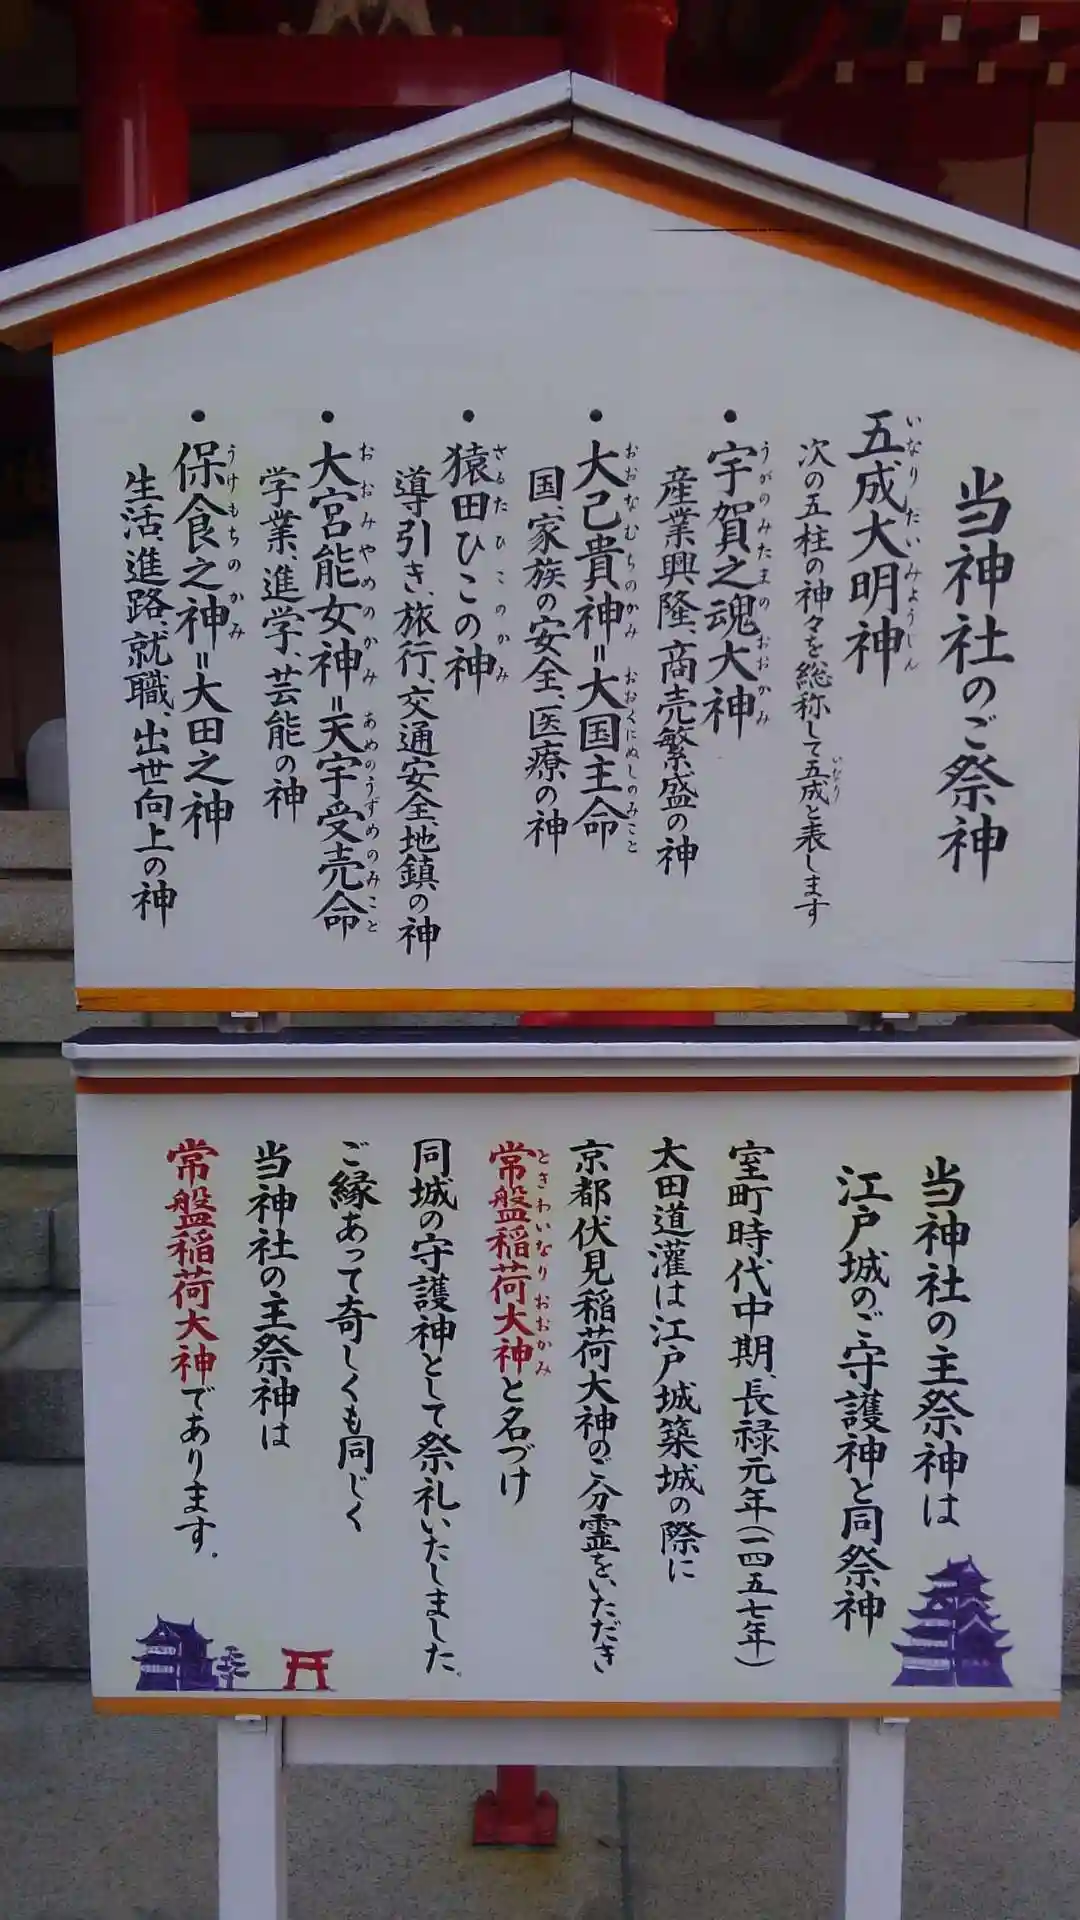 当神社のご祭神
五成大明神
いなりだいみょうじん
次の五柱の神々を総称して五成と表します
いなり
・宇賀之魂大神
うがのみたまのおおかみ
産業興隆、商売繁盛の神
・大己貴神=大国主命
おおなむちのかみ おおくにぬしのみこと
国、家族の安全、医療の神
・猿田ひこの神
さるたひこのかみ
導引き、旅行、交通安全、地鎮の神
・大宮能女神=天宇受売命
おおみやめのかみ あめのうずめのみこと
学業、進学、芸能の神
・保食之神=大田之神
うけもちのかみ
生活、進路、就職、出世向上の神
当神社の主祭神は
江戸城のご守護神と同祭神
室町時代中期、長禄元年(一四五七年)
太田道灌は江戸城築城の際に
京都伏見稲荷大神のご分霊をいただき
常盤稲荷大神と名づけ
ときわいなりおおかみ
同城の守護神として祭礼いたしました。
ご縁あって奇しくも同じく
当神社の主祭神は
常盤稲荷大神であります。